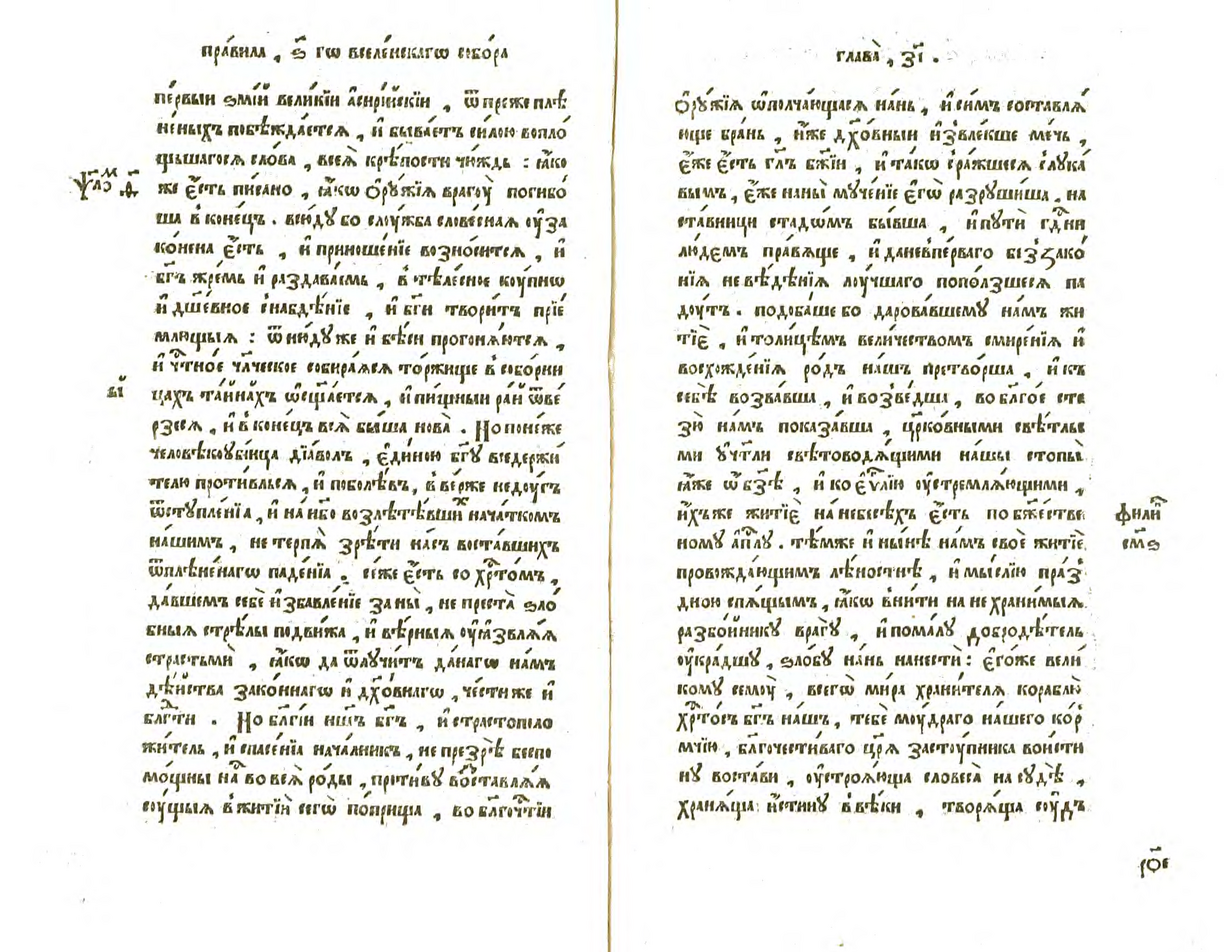 пра́вила , ѕ҃ гѡ вселе́нскагѡ собо́ра
пе́рвыи ѕмі́й вели́кїи а҆сирі́йскїи , ѿ преже плѣ
не́ныхъ побѣжда́ется , и҆ быва́етъ си́лою вопло́
щьшагося сло́ва , всея̀ крѣ́пости чю́ждь : ꙗ҆́ко
же є҆́сть пи́сано , ꙗ҆́кѡ ѻ҆рꙋ́жїѧ врагоу̀ погибо́
ша в̾ коне́цъ . всю́дꙋ бо слоу́жба слове́снаѧ оу҆за
ко́нена є҆́сть , и҆ приноше́нїе возно́сится , и҆
бг҃ъ жре́мь и҆ раздава́емь , в̾ тѣле́сное коу́пнѡ
и҆ дш҃е́вное снабдѣ́нїе , и҆ бг҃и твори́тъ прїе́
млющыѧ : ѿню́дꙋ же и҆ бѣ́си прогонѧ́ются ,
и҆ чтⷭ҇ное чл҃ческое собира́ѧсѧ то́ржище в̾ собо́рни
цахъ та́йнахъ ѡ҆сщ҃а́ется , и҆ пи́щныи ра́й ѿве́
рзесѧ , и҆ в̾ коне́цъ всѧ̀ бы́ша но́ва . Но поне́же
человѣкоуби́йца дїа́волъ , є҆ди́ною бг҃ꙋ вседержи́
телю проти́вльсѧ , и҆ поболѣ́въ , в̾ве́рже недоу́гъ
ѿстꙋпле́нїѧ , и҆ на нб҃о возлетѣ́вшихъ нача́ткомъ
на́шимъ , не терпѧ̀ зрѣ́ти на́съ воста́вшихъ
ѿ плѣне́нагѡ паде́нїѧ . се́же є҆́сть со хрⷭ҇то́мъ ,
да́вшемъ себѐ и҆збавле́нїе за ны̀ , не преста̀ ѕло́
бныѧ стрѣ́лы подви́жа , и҆ вѣ́рныѧ оу҆ꙗ҆звлѧ́ѧ
страстьмѝ , ꙗ҆́кѡ да ѿлꙋчи́тъ да́нагѡ на́мъ
дѣ́йства зако́ннагѡ и҆ дх҃о́внагѡ , че́сти же и҆
блгⷣти . Но бл҃гі́и нш҃ъ бг҃ъ , и҆ страстополо
жи́тель , и҆ спасе́нїѧ нача́лникъ , не презрѣ̀ беспо́
мощны на́съ во всѧ̀ ро́ды , проти́вꙋ воставлѧ́ѧ
соу́щыѧ в̾ житі́и сегѡ̀ по́прища , во блгоⷱ҇тїи
ѱа́лом ѳ҃
в҃і
глава̀ , з҃і .
ѻ҆рꙋ́жїѧ ѡ҆полча́ющаѧсѧ на́нь , и҆ си́мъ составлѧ́
юще бра́нь , и҆́же дꙋхо́вныи и҆звле́кше ме́чь ,
є҆́же є҆́сть гл҃ъ бж҃їи , и҆ та́кѡ сра́жшесѧ с̾лꙋка́
вымъ , є҆́же на ны̀ мꙋче́нїе є҆гѡ̀ разрꙋши́ша . на
ста́вницы стадѡ́мъ бы́вша , и҆ пꙋтѝ гдⷭ҇ни
лю́демъ пра́вѧще , и҆ да не в̾пе́рваго без̾зако́
нїѧ невѣ́дѣнїѧ лоу́чшаго попо́лзшесѧ па
доу́тъ . подоба́ше бо дарова́вшемꙋ на́мъ жи
тїѐ , и҆ толи́цѣмъ вели́чествомъ смире́нїѧ и҆
восхожде́нїѧ ро́дъ на́шъ претво́рша , и҆ къ
себѣ̀ возва́вша , и҆ возве́дша , во бл҃го́е сте
зю̀ на́мъ показа́вша , цр҃ко́вными свѣтлы
ми оу҆чт҃ли свѣтоводѧ́щими на́шы стопы̀
ꙗ҆́же ѡ҆ бз҃ѣ , и҆ ко є҆ѵⷢ҇лїю оу҆стремлѧ́ющими ,
и҆́хъже житїѐ на небесѣ́хъ є҆́сть по бжⷭ҇тве
номꙋ а҆пⷭ҇лꙋ . тѣ́мже и҆ нн҃ѣ на́мъ своѐ житїѐ
провожда́ющимъ лѣ́ностнѣ , и҆ мы́слїю пра́з
дною спѧ́щымъ , ꙗ҆́кѡ вни́ти на нехрани́мыѧ
разбо́йникꙋ врагꙋ̀ , и҆ пома́лꙋ добродѣ́тель
оу҆кра́дшꙋ , ѕло́бꙋ на́нь нанестѝ : є҆го́же вели́
комꙋ семоу̀ , всегѡ̀ ми́ра храни́телѧ кораблю̀
хрⷭ҇то́съ бг҃ъ на́шъ , тебѐ моу́драго на́шего ко́р
мчїю , бл҃гочести́ваго цр҃ѧ̀ застоу́пника вои́сти
нꙋ воста́ви , оу҆строѧ́юща словеса̀ на сꙋдѣ̀ ,
хранѧ́ща и҆́стинꙋ в̾ вѣ́ки , творѧ́ща соу́дъ
филиⷫ҇
см҃ѕ
рⷪ҇е